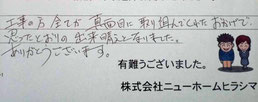 工事の方全てが真面目に取り組んでくれたおかげで
思ったとおりの出来映えとなりました。
ありがとうございます。
有難うございました。
株式会社ニューホームヒラシマ